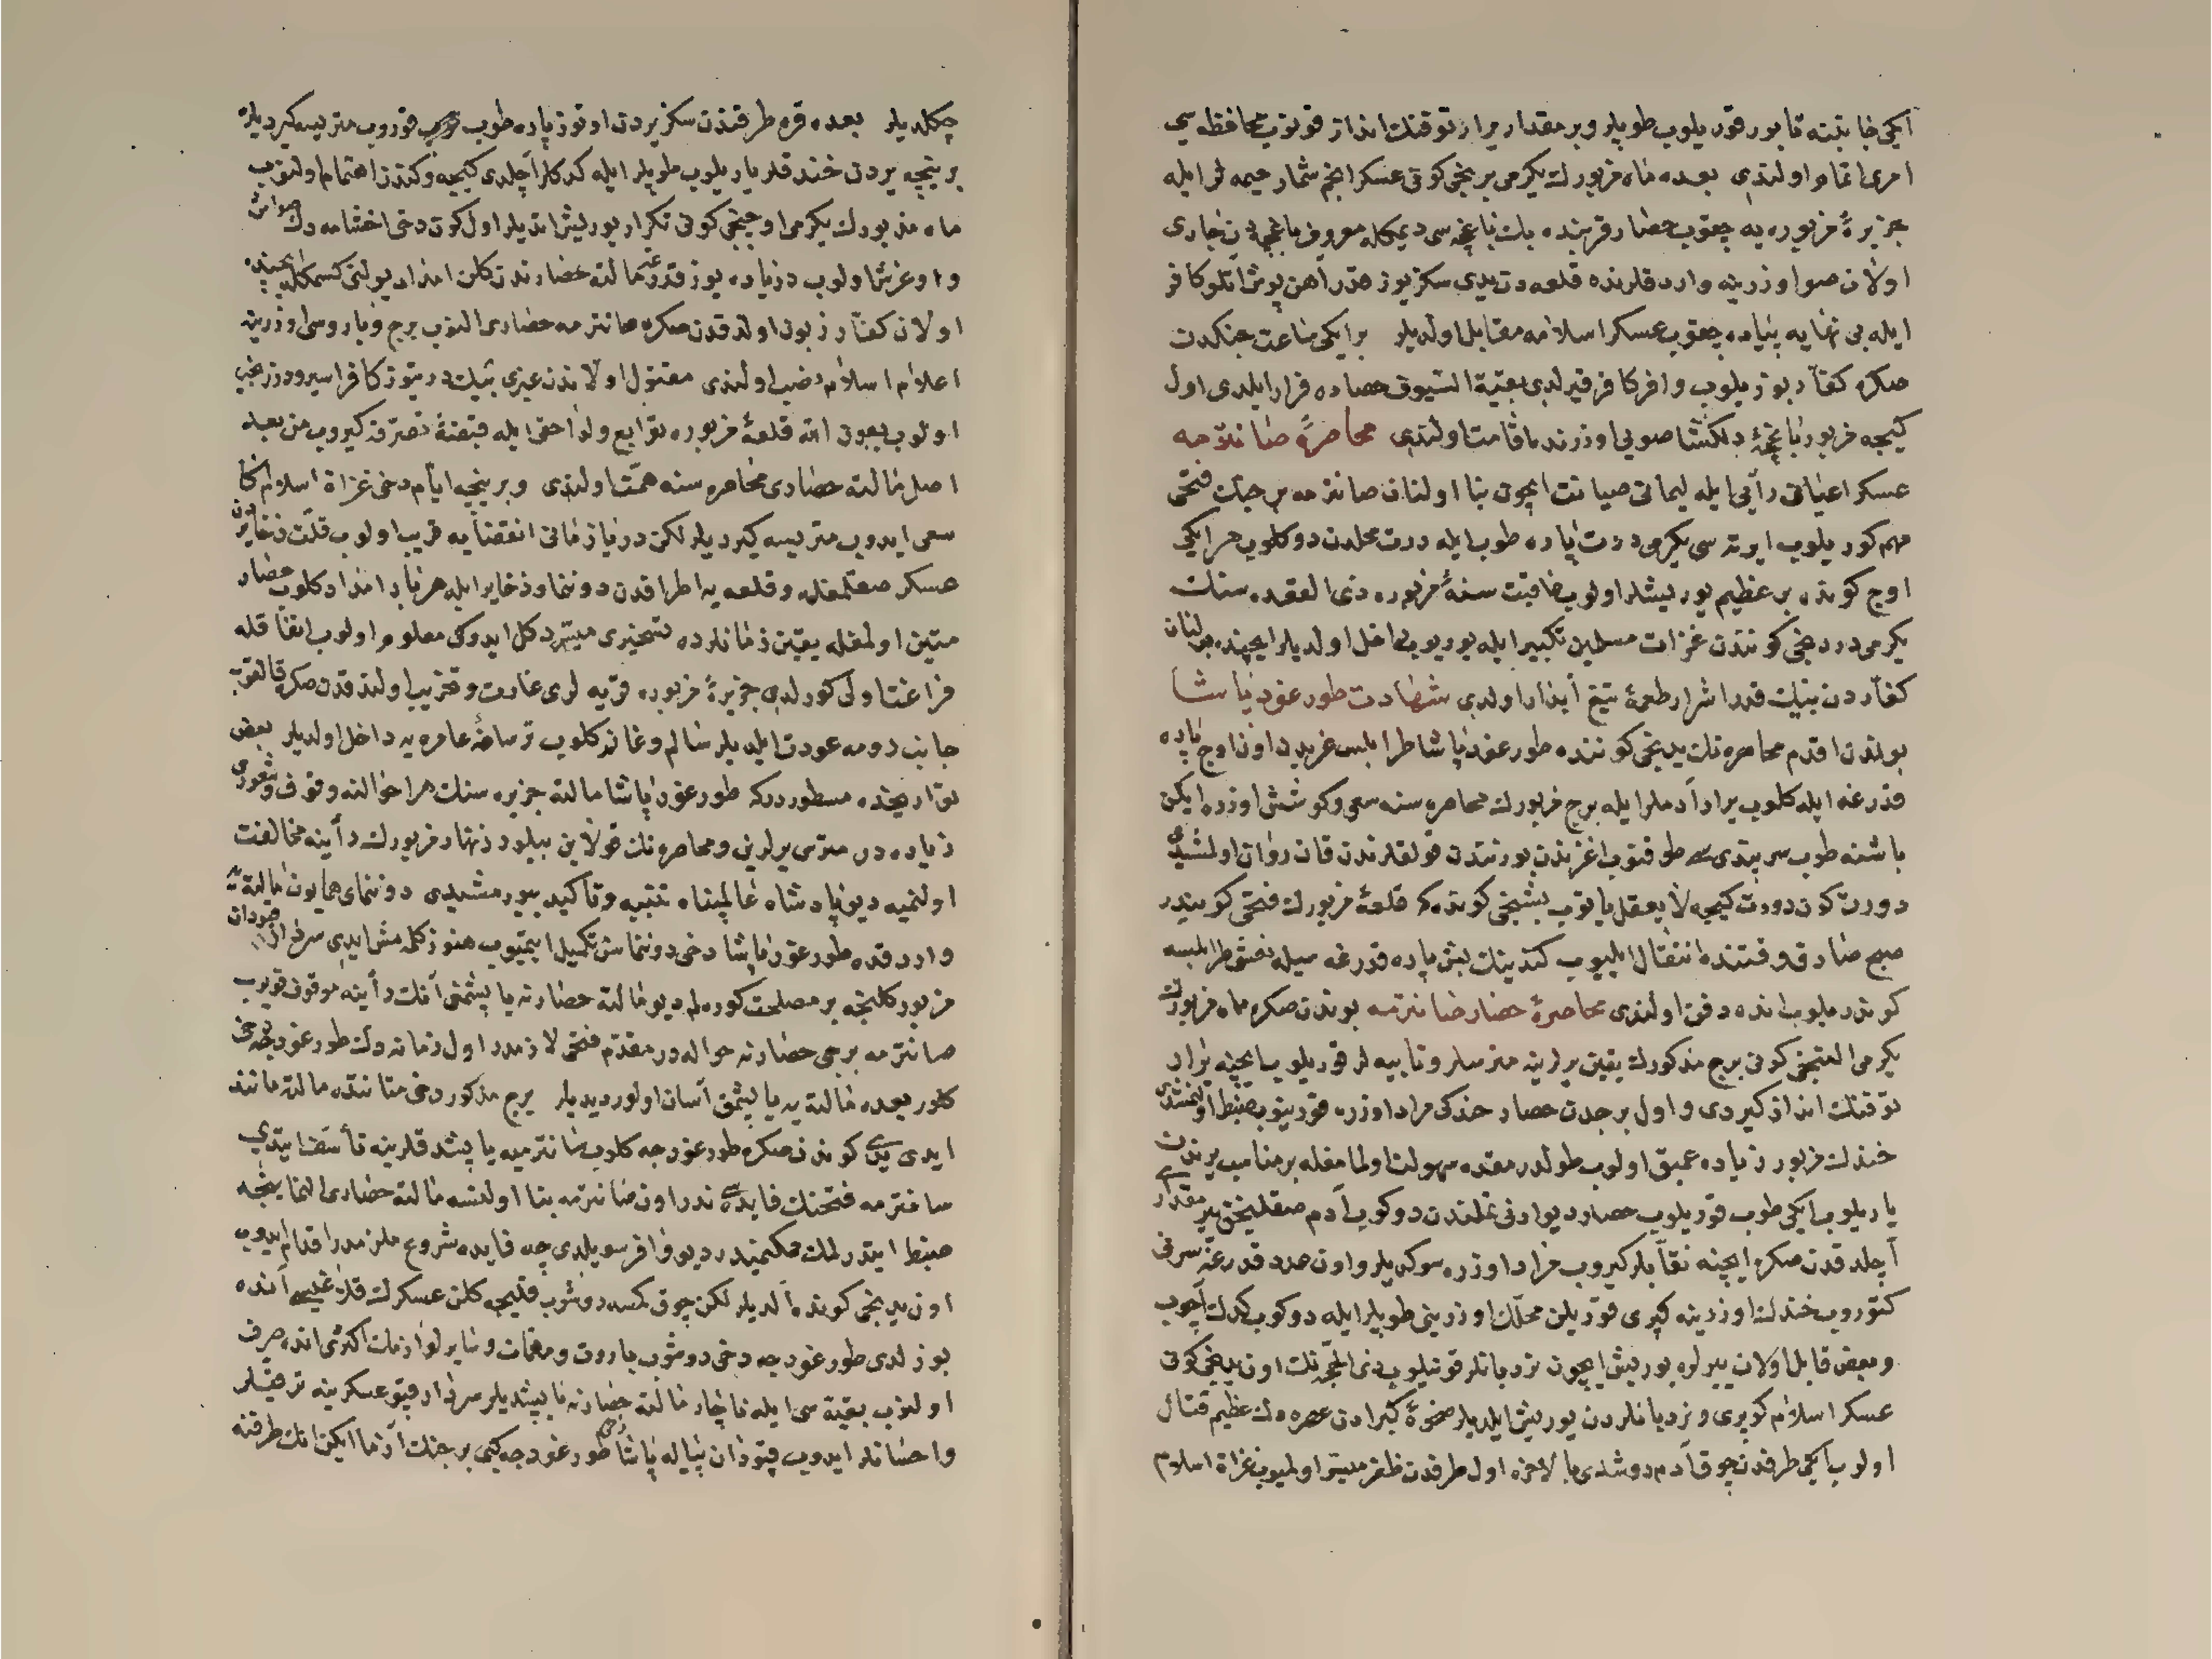 ایکی جانبنه قابور قوریلوب طوپلر وبر مقدار یرار توفنك انداز قونوب محافظه سی
امری اتمام اولندی بعده ماه مزبورك یکرمی برنجی کونی عسکر انجم شمار جیمه لر ایله
جزیرۀ مزبوره یه چیقوب حصار قربنده بك باغچه سی دیمکله معروف باغچه دن جاری
اولان صو اوزرینه واردقلرنده قلعه دن یدی سکز یوز قدر آهن پوش آتلو کافر
ایله بی نهایه پیاده چیقوب عسکر اسلامه مقابل اولدیلر بر ایکی ساعت جنکدن
صکره کفار بوزیلوب وافر کافر قیرلدی بقیة السیوف حصاره فرار ایلدی اول
کیجه مزبور باغچۀ دلکشا صویی اوزرنده اقامت اولندی محاصرۀ صانترمه
عسکر اعیانی رأیی ایله لیمانی صیانت ایچون بنا اولنان صانترمه برجنك فتحی
مهم کوریلوب ایرته سی یکرمی درت پاره طوب ایله درت محلدن دوکلوب هر ایکی
اوج کونده بر عظیم یوریشلر اولوب عاقبت سنۀ مزبوره ذی القعده سنك
یکرمی دردنجی کوننده غزات مسلمین تکبیر ایله یوریوب داخل اولدیلر ایچنده بولنان
کفاردن بیك قدر اشرار طعمۀ تیغ آبدار اولدی شهادت طورغود پاشا
بوندن اقدم محاصره نك یدنجی کوننده طورغود پاشا طرابلس غربدن اون اوج پاره
قدرغه ایله کلوب یرار آدملر ایله برج مزبورك محاصره سنه سعی وکوشش اوزره ایکن
باشنه طوب سرپندی سی طوقنوب اغزندن بورنندن قولقلرندن قان روان اولمشیدی
دورت کون دورت کیجه لا یعقل یاتوب بشنجی کونده که قلعۀ مزبورك فتحی کونیدر
صبح صادق وقتنده انتقال ایلیوب کندینك بش پاره قدرغه سیله نعشی طرابلسه
کوندریلوب انده دفن اولندی محاصرۀ حصار صانترمه بوندن صکره ماه مزبورك
یکرمی التنجی کونی برج مذکورك یقین یرلرینه مترسلر وتابیه لر قوریلوب ایچنه یرار
توفنك انداز کیردی واول برجدن حصار خندکی مرادا وزره قورینوب ضبط اولنمشدی
خندك مزبور زیاده عمیق اولوب طولدرمقده سهولت اولمامغله بر مناسب یرندن
یاریلوب ایکی طوب قوریلوب حصار دیوارنی تملندن دوکوب آدم صغلیجق یر مقدار
آچلدقدن صکره ایچنه نقابلر کیروب مراد اوزره سوکدیلر واون عدد قدرغه سرنی
کتوروب خندك اوزرینه کپری قوریلن محلك اوزرینی طوپلر ایله دوکوب کدك آچوب
وبعض قابل اولان یرلره یوریش ایچون نردبانلر قونیلوب ذی الحجه نك اون یدنجی کونی
عسکر اسلام کوپری ونردبانلردن یوریش ایلدیلر ضحوۀ کبرادن عصره دك عظیم قتال
اولوب ایکی طرفدن چوق آدم دوشدی بالاخره اول طرفدن ظفر میسر اولمیوب غزاة اسلام
چکلدیلر بعده قره طرفندن سکز یردن اوتوز پاره طوب قوروب متریسه کیردیلر
بر نیجه یردن خندقلر یاریلوب طوپلر ایله کدکلر آچلدی کیجه وکندز اهتمام اولنوب
ماه مذبورك یکرمی اوچنجی کونی تکرار یوریش ایتدیلر اول کون دخی اخشامه دك صواش
واوغرش اولوب دزیاده یوز قدرغه مالته حصارندن کلن امداد یولنی کسمکله ایچنده
اولان کفار زبون اولدقدن صکره صانترمه حصاری النوب برج وباروسی اوزرینه
اعلام اسلام نصب اولندی مقتول اولاندن غیری بیك درتیوز کافر اسیر ودرزنجیر
اولوب بعون الله قلعۀ مزبوره توابع ولواحقی ایله قبضۀ تصرفه کیروب من بعد
اصل مالته حصاری محاصره سنه همت اولندی وبر نیجه ایام دخی غزاة اسلام کا
سعی ایدوب متریسه کیردیلر لکن دریا زمانی انقضایه قریب اولوب قلت ذخایردن
عسکر صقلمغله وقلعه یه اطرافدن دوننما وذخایر ایله هر بار امداد کلوب حصار
متین اولمغله یقین زمانلرده تسخیری میسر دکل ایدوکی معلوم اولوب اتفاقله
فراغت اولی کورلدی جزیرۀ مزبوره قریه لری غارت وتخریب اولندقدن صکره قالقوب
جانب رومه عودت ایلدیلر سالم وغانم کلوب ترسانۀ عامره یه داخل اولدیلر بعض
تواریخده مسطوردرکه طورغود پاشا مالته جزیره سنك هر احوالنه وقوف وشعوری
زیاده در مترس یرلرین ومحاصره نك قولاین بیلور زنهار مزبورك رأینه مخالفت
اولنمیه دیو پادشاه عالمپناه تنبیه وتأکید بیورمشیدی دوننمای همایون مالته یه
واردقده طورغود پاشا دخی دوننماسن تکمیل ایتمیوب هنوز کلمه مش ایدی سردار
مزبور کلنجه بر مصلحت کوره لم دیو مالته حصارنه یاپشمغی آنك رأینه موقوف قویوب
صانترمه برجی حصارنه حواله در مقدم فتحی لازمدر اول زمانه دك طورغودجه دخی
کلور بعده مالته یه یاپشمق آسان اولور دیدیلر برج مذکور دخی متانتده مالته مانند
ایدی یدی کوندن صکره طورغودجه کلوب صانترمیه یاپشدقلرینه تأسف ایتدی
سانترمه فتحنك فایده سی ندر اون صانترمه بنا اولنسه مالته حصاری النماینجه
ضبط ایتدرلمك ممکنمیدر دیو وافر سویلدی چه فایده شروع ملزمدر اقدام ایدوب
اون یدنجی کونده آلدیلر لکن چوق کمسه دوشوب قلیجه کلن عسکرك قلبی انده
بوزلدی طورغودجه دخی دوشوب باروت ومهمات وسایر لوازمك اکثری انده صرف
اولنوب بقیه سی ایله ناچار مالته حصارنه یاپشدیلر سردار قپو عسکرینه ترقیلر
واحسانلر ایدوب قپودان پیاله پاشا طورغودجه کبی بر جنك آزما ایکن انك طرفنه